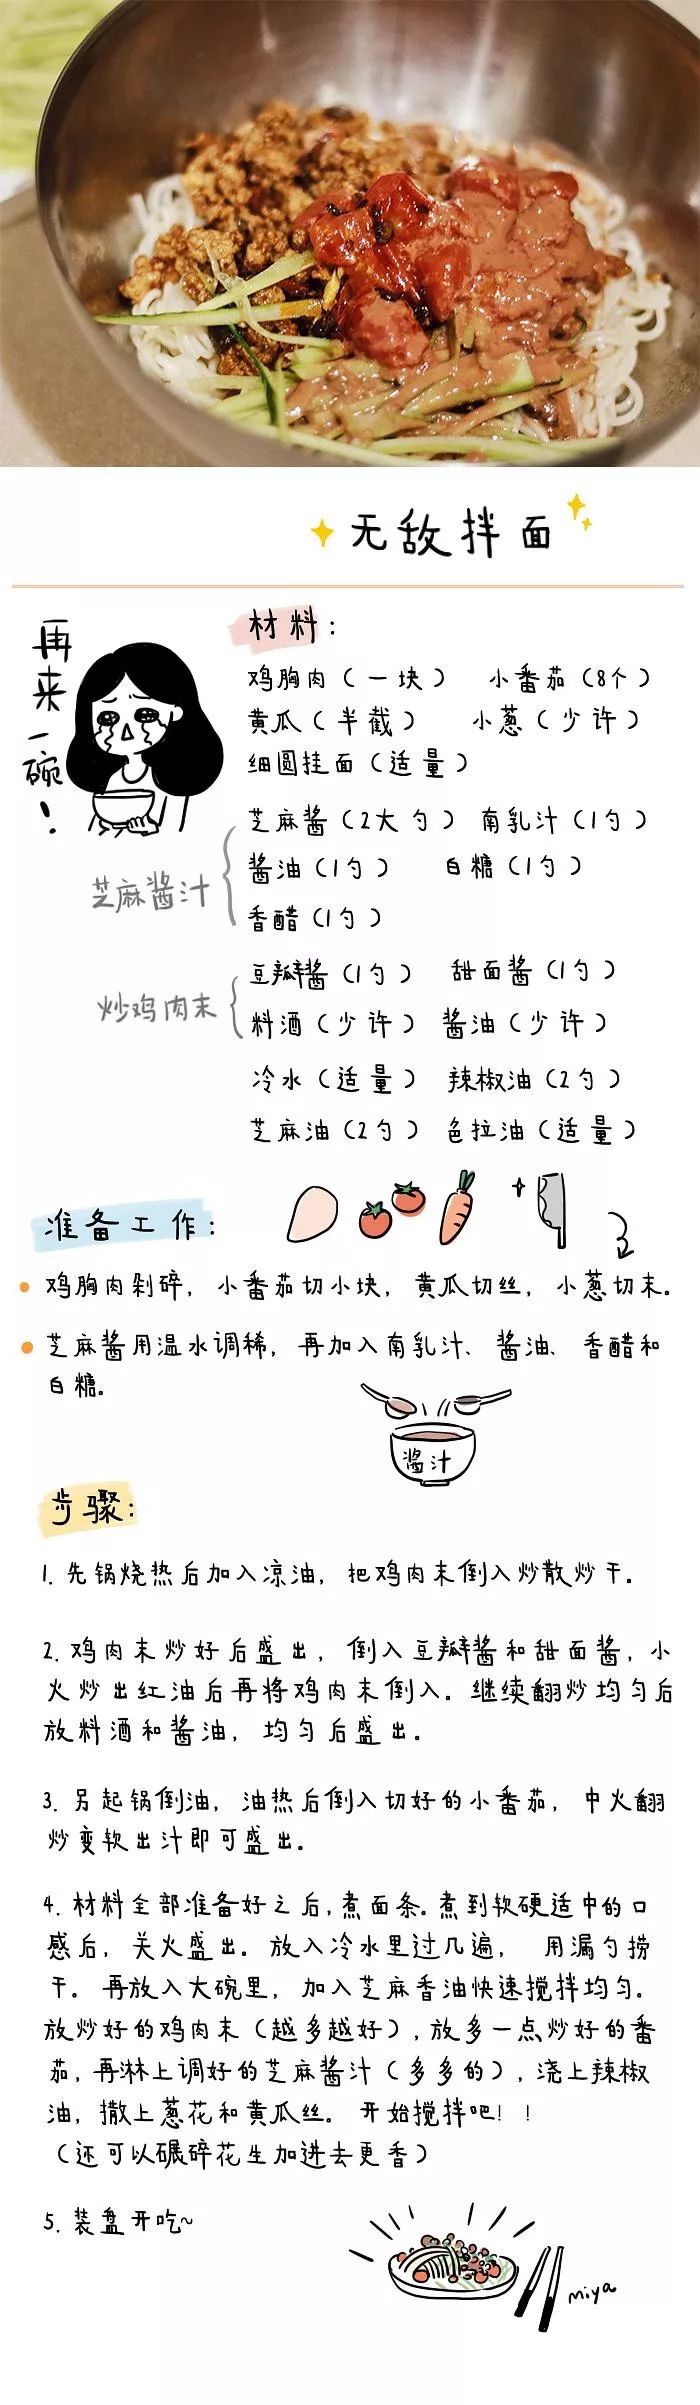 无敌拌面
再来一碗！
材料：
鸡胸肉（一块） 小番茄（8个）
黄瓜（半截） 小葱（少许）
细圆挂面（适量）
芝麻酱汁
芝麻酱（2大勺） 南乳汁（1勺）
酱油（1勺） 白糖（1勺）
香醋（1勺）
炒鸡肉末
豆瓣酱（1勺） 甜面酱（1勺）
料酒（少许） 酱油（少许）
冷水（适量） 辣椒油（2勺）
芝麻油（2勺） 色拉油（适量）
准备工作：
鸡胸肉剁碎，小番茄切小块，黄瓜切丝，小葱切末。
芝麻酱用温水调稀，再加入南乳汁、酱油、香醋和
白糖。
酱汁
步骤：
1. 先锅烧热后加入凉油，把鸡肉末倒入炒散炒干。
2. 鸡肉末炒好后盛出，倒入豆瓣酱和甜面酱，小
火炒出红油后再将鸡肉末倒入。继续翻炒均匀后
放料酒和酱油，均匀后盛出。
3. 另起锅倒油，油热后倒入切好的小番茄，中火翻
炒变软出汁即可盛出。
4. 材料全部准备好之后，煮面条。煮到软硬适中的口
感后，关火盛出。放入冷水里过几遍，用漏勺捞
干。再放入大碗里，加入芝麻香油快速搅拌均匀。
放炒好的鸡肉末（越多越好），放多一点炒好的番
茄，再淋上调好的芝麻酱汁（多多的），浇上辣椒
油，撒上葱花和黄瓜丝。开始搅拌吧！！
（还可以碾碎花生加进去更香）
5. 装盘开吃~
miya